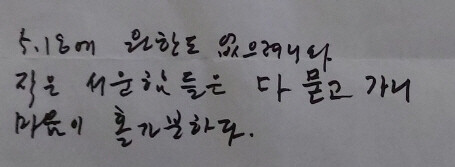 5.18에 원한도 없으려니와
작은 서운함들은 다 묻고 가니
마음이 홀가분하다.